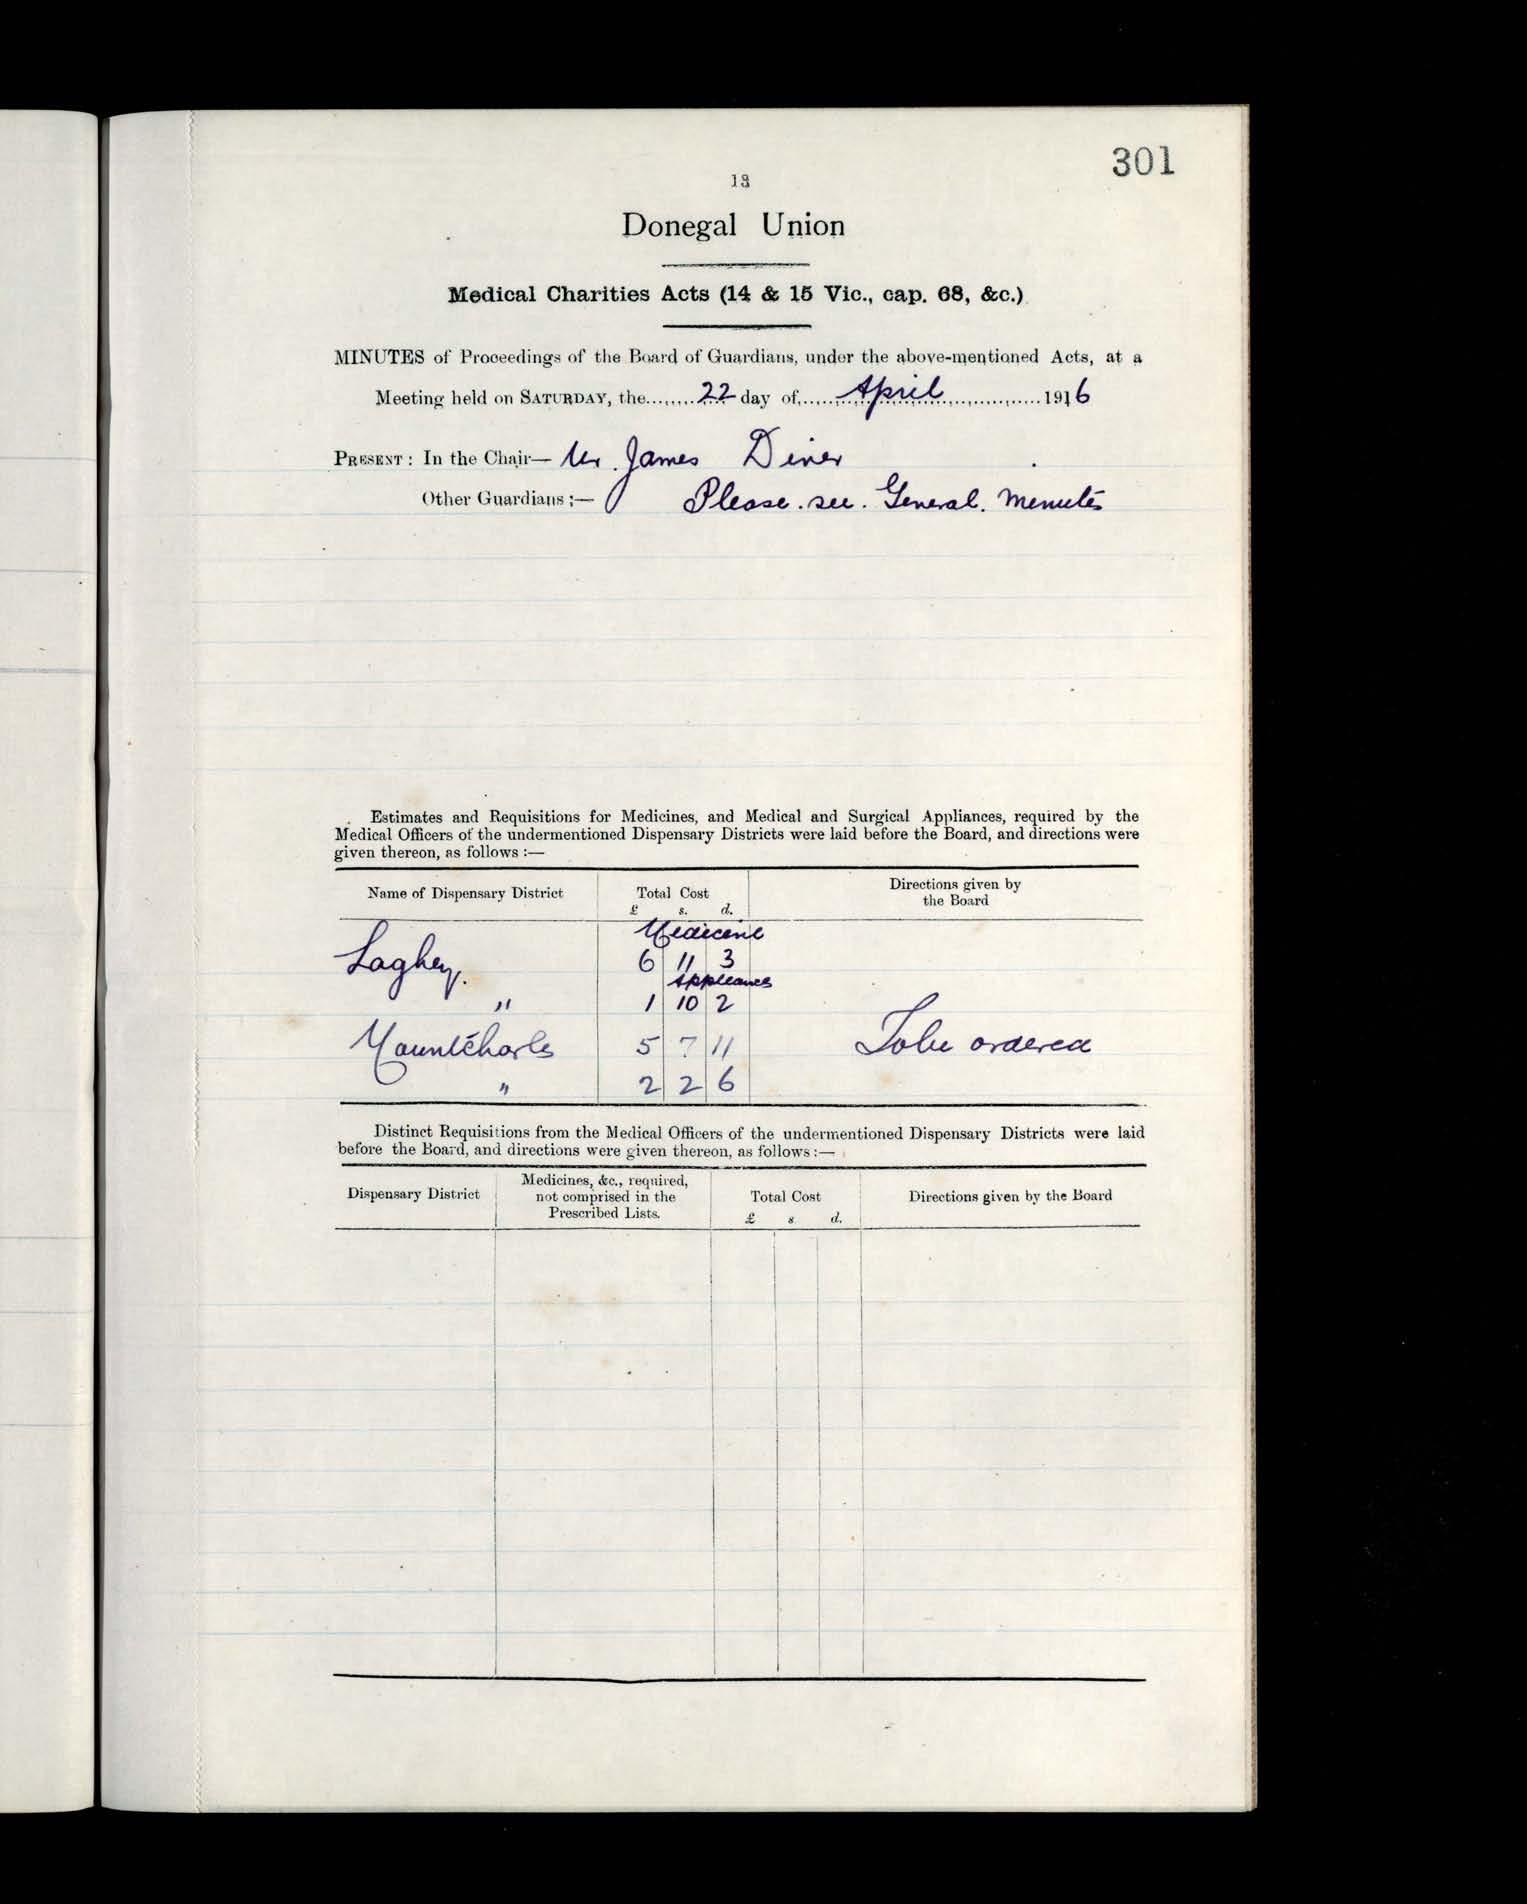 301
13
Donegal Union
Medical Charities Acts (14 & 15 Vic., cap. 68, &c.)
MINUTES of Proceedings of the Board of Guardians, under the above-mentioned Acts, at a
Meeting held on SATURDAY, the........22 day of,.....April..................1916
PRESENT : In the Chair— Mr. James Diver
Other Guardians :— Please see General Minutes
Estimates and Requisitions for Medicines, and Medical and Surgical Appliances, required by the
Medical Officers of the undermentioned Dispensary Districts were laid before the Board, and directions were
given thereon, as follows :—
Name of Dispensary District Total Cost Directions given by
the Board
£ s. d.
Medicine
Laghey. 6 11 3
Appliances
" 1 10 2
Mountcharles 5 7 11 To be ordered
" 2 2 6
Distinct Requisitions from the Medical Officers of the undermentioned Dispensary Districts were laid
before the Board, and directions were given thereon, as follows :—
Dispensary District Medicines, &c., required,
not comprised in the
Prescribed Lists. Total Cost Directions given by the Board
£ s. d.